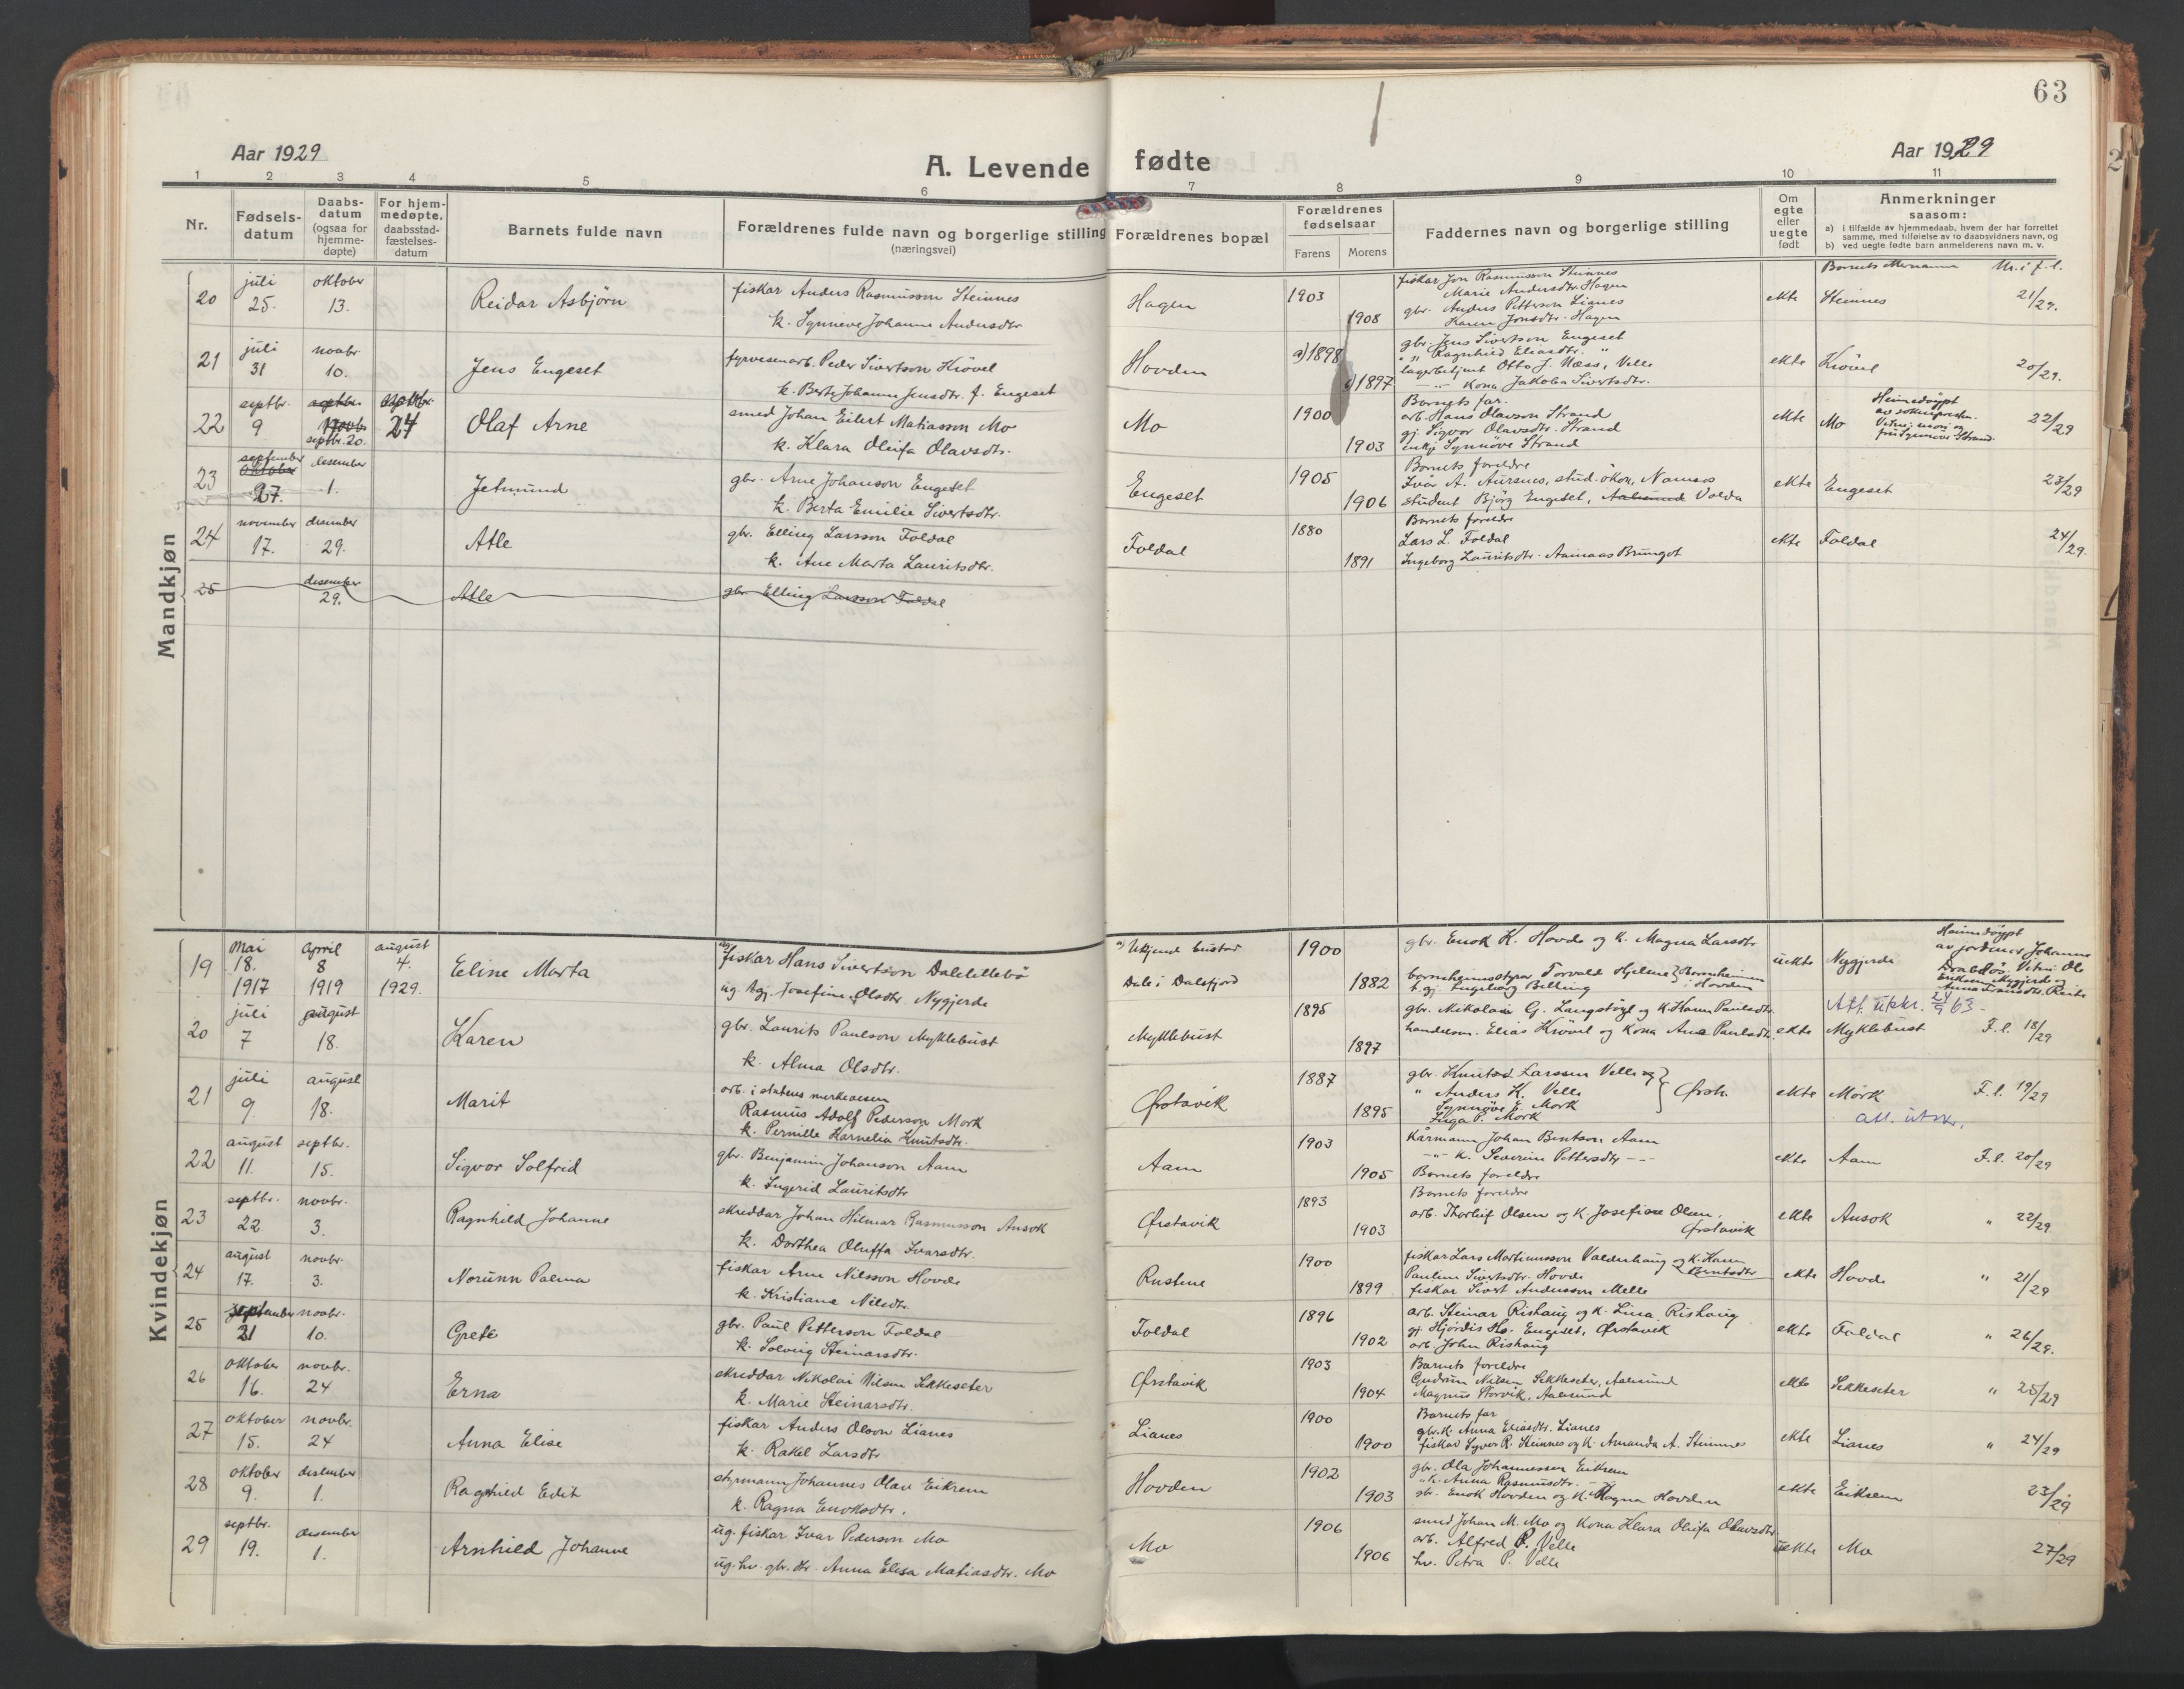 63
Aar 1929
A. Levende fødte
Aar 1929
1 2 3 4 5 6 7 8 9 10 11
Nr.
Fødsels-
datum
Daabs-
datum
(ogsaa for
hjemme-
døpte)
For hjem-
medøpte,
daabsstad-
fæstelses-
datum
Barnets fulde navn
Forældrenes fulde navn og borgerlige stilling
(næringsvei)
Forældrenes bopæl
Forældrenes
fødselsaar
Farens Morens
Faddernes navn og borgerlige stilling
Om
egte
eller
uegte
født
Anmerkninger
saasom:
a) i tilfælde av hjemmedaab, hvem der har forrettet
samme, med tilføielse av to daabsvidners navn, og
b) ved uegte fødte barn anmelderens navn m. v.
Mandkjøn
Nr. i f. l.
20
juli
25.
oktober
13.
Reidar Asbjörn
fiskar Anders Rasmusson Steinnes
k. Synneve Johanne Andersdtr
Hagen
1903
1908
fiskar Jon Rasmusson Steinnes
Marie Andersdtr. Hagen
gbr. Anders Petterson Lianes
Karen Jonsdtr. Hagen
ekte
Steinnes
21/29.
21
juli
31
novbr.
10.
Jens Engeset
fyrvesenarb. Peder Sivertson Krövel
k. Berte Johanne Jensdtr. f. Engeset
Hovden
a) 1898
1897
gbr. Jens Sivertson Engeset
" Ragnhild Eliasdtr. "
lagerbetjent Otto J. Næss, Velle
-"- Kona Jakoba Sivertsdtr.
ekte
Krövel
20/29.
22
septbr.
9
septbr. 20.
24
Olaf Arne
smed Johan Eilert Matiasson Mo
k. Klara Oleifa Olavsdtr.
Mo
1900
1903
Barnets far.
arb. Hans Olavson Strand
gj. Sigvor Olavsdtr. Strand
enkje Synnöve Strand
ekte
Mo
Heimedöypt
av soknepresten.
Vitni: mori og
fru Synnöve Strand.
22/29
23
september
oktober
27.
desember
1.
Jetmund
gbr. Arne Johanson Engeset
k. Berta Emilie Sivertsdtr.
Engeset
1905
1906
Barnets foreldre
Ivar A. Aursnes, stud. ökon, Namsos
student Björg Engeset, Aalesund Volda
ekte
Engeset
23/29
24
november
17.
desember
29.
Atle
gbr. Elling Larsson Foldal
k. Ane Marta Lauritsdtr.
Foldal
1880
1891
Barnets foreldre
Lars L. Foldal
Ingeborg Lauritsdtr. Aamaas Brungot
ekte
Foldal
24/29.
25
desember
29.
Atle
gbr Elling Larsson Foldal
Kvindekjøn
19
Mai
18.
1917
April
8
1919
august
4.
1929.
Eline Marta
fiskar Hans Sivertson Dalelillebö
ug. tgj. Josefine Olsdtr. Nygjerde
a) Ukjend bustad
Dale i Dalsfjord
1900
1882
gbr. Enok K. Hovde og k. Magna Larsdtr
barneheimsstyrar Torvald Hjelme } Barneheimen
t.gj Ingeborg Belling i Hovden
uekte
Nygjerde
Heimedöypt
av jordmor Johanne
Vitni: Ole
Eriksen Nygjerde og
Att. utskr. 24/9 63 -
20
juli
7
august
18.
Karen
gbr. Laurits Paulson Myklebust
k. Alma Olsdtr.
Myklebust
1895
1897
gbr. Mikolai G. Langstöyl og k. Hanna Paulsdtr.
handelsm. Elias Krövel og Kona Ane Paulsdtr.
ekte
Myklebust
F.l. 18/29
21
juli
9.
august
18.
Marit
arb. i statens merkevesen
Rasmus Adolf Pederson Mork
k. Pernille Karnelia Knutsdtr.
Örstavik
1887
1895
gbr. Knut Larsson Velle og
" Anders K. Velle
Synnöve E. Mork
Inga P. Mork
Örst.
ekte
Mörk
F.l. 19/29
att. utskr.
22
august
11.
septbr.
15.
Sigvor Solfrid
gbr. Benjamin Johanson Aam
k. Ingerid Lauritsdtr
Aam
1903
1905
Kårmann Johan Bentson Aam
-"- k. Severine Pettersdtr -"-
Barnets foreldre
ekte
Aam
F.l. 20/29
23
septbr.
22.
novbr.
3.
Ragnhild Johanne
skreddar Johan Hilmar Rasmusson Ansok
k. Dorthea Oluffa Ivarsdtr.
Örstavik
1893
1903
Barnets foreldre
arb. Thorleif Olsen og k. Josefine Olsen.
Örstavik
ekte
Ansok
" 22/29.
24
august
17.
novbr.
3.
Norunn Palma
fiskar Arne Nilsson Hovde
k. Kristiane Nilsdtr.
Rustene
1900
1899
fiskar Lars Martinusson Valderhaug og k. Hanna
Bentsdtr
Pauline Sivertsdtr. Hovde
fiskar Sivert Andersson Melle
ekte
Hovde
" 21/29
25
september
21
novbr.
10.
Grete
gbr. Paul Petterson Foldal
k. Solveig Steinarsdtr.
Foldal
1896
1902
arb. Steinar Rishaug og k. Lina Rishaug
gj. Hjördis Hs. Engeset, Örstavik
arb. John Rishaug
ekte
Foldal
" 26/29.
26
oktober
16.
novbr.
24
Erna
skreddar Nikolai Nilsen Sekkeseter
k. Marie Steinarsdtr.
Örstavik
1903
1904
Barnets foreldre
Gudrun Nilsen Sekkeseter, Aalesund
Magnus Storvik, Aalesund
ekte
Sekkeseter
" 25/29
27
oktober
15.
novbr.
24
Anna Elise
fiskar Anders Olson Lianes
k. Rakel Larsdtr
Lianes
1900
1900
Barnets far
gbr.k. Anna Eliasdtr. Lianes
fiskar Syver R. Steinnes og k. Amanda A. Steinnes
ekte
Lianes
" 24/29
28
oktober
9.
desember
1.
Ragnhild Edit
styrmann Johannes Olav Eikrem
k. Ragna Enoksdtr.
Hovden
1902
1903
gbr. Ola Johannessen Eikrem
" k. Anna Rasmusdtr. -"-
gbr. Enok Hovden og k. Magna Hovden
ekte
Eikrem
23/29
29
septbr.
19.
desember
1.
Arnhild Johanne
ug. fiskar Ivar Pederson Mo
ug. hv. gbr. dtr. Anna Elisa Matiasdtr. Mo
Mo
1906
1906
smed Johan M. Mo og Kona Klara Oleifa Olavsdtr.
arb. Alfred P. Velle
hv. Petra P. Velle
uekte
Mo
27/29